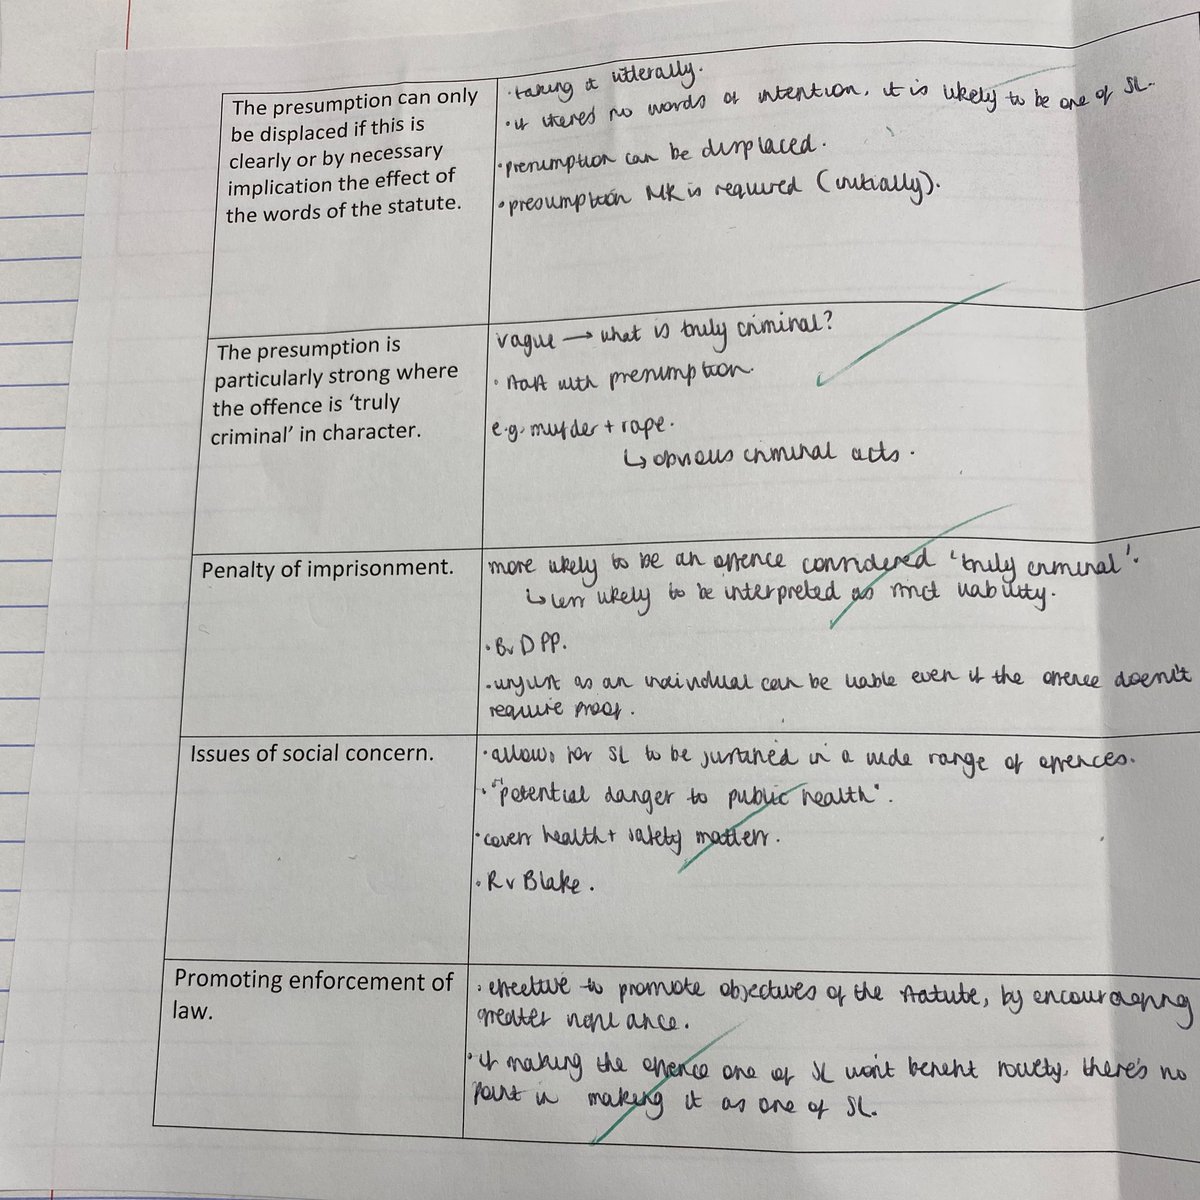 The presumption can only
be displaced if this is
clearly or by necessary
implication the effect of
the words of the statute.
· taking it literally.
· if theres no words of intention, it is likely to be one of SL.
· presumption can be displaced.
· presumption MR is required (initially).
The presumption is
particularly strong where
the offence is ‘truly
criminal’ in character.
vague → what is truly criminal?
· start with presumption.
e.g. murder + rape.
↳ obvious criminal acts.
Penalty of imprisonment.
more likely to be an offence considered 'truly criminal'.
↳ less likely to be interpreted as strict liability.
· B v DPP.
· unjust as an individual can be liable even if the offence doesn't
require proof.
Issues of social concern.
· allows for SL to be justified in a wide range of offences.
· "potential danger to public health".
· covers health + safety matters.
· R v Blake.
Promoting enforcement of
law.
· effective to promote objectives of the statute, by encouraging
greater vigilance.
· if making the offence one of SL won't benefit society, there's no
point in making it as one of SL.